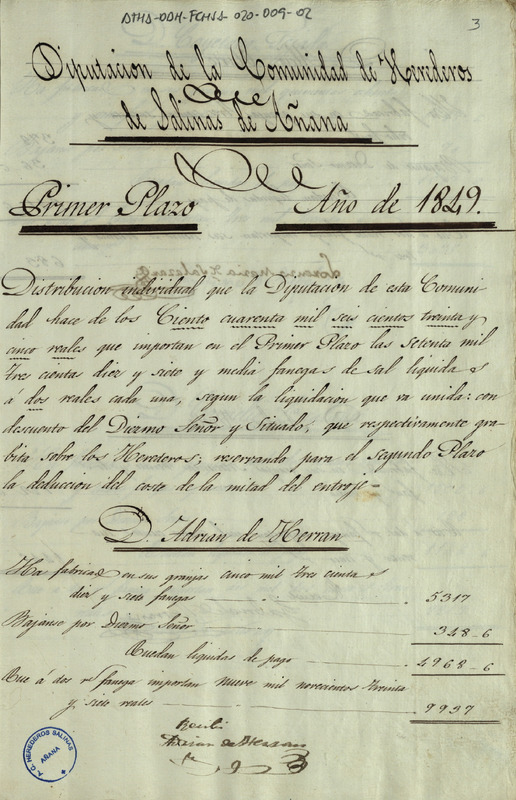 ATHS-DDH-FCHSS-020-009-02
3
Diputacion de la Comunidad de Herederos
de Salinas de Añana
Primer Plazo Año de 1849.
Distribucion individual que la Diputacion de esta Comuni-
dad hace de los Ciento cuarenta mil seis cientos treinta y
cinco reales que importan en el Primer Plazo las setenta mil
tres cienta diez y siete y media fanegas de sal liquida
á dos reales cada una, segun la liquidacion que va unida: con
descuento del Diezmo Señor y Situado, que respectivamente gra-
bita sobre los Herederos; reservando para el segundo Plazo
la deduccion del coste de la mitad del entroje
D. Adrian de Herran
Ha fabricado en sus granjas cinco mil tres cienta
diez y siete fanega 5317
Bajanse por Diezmo Señor 348-6
Quedan liquidas de pago 4968-6
Que á dos rs. fanega importan nueve mil novecientos treinta
y siete reales 9937
Recibi
Adrian de Herran
A.C. HEREDEROS SALINAS
AÑANA